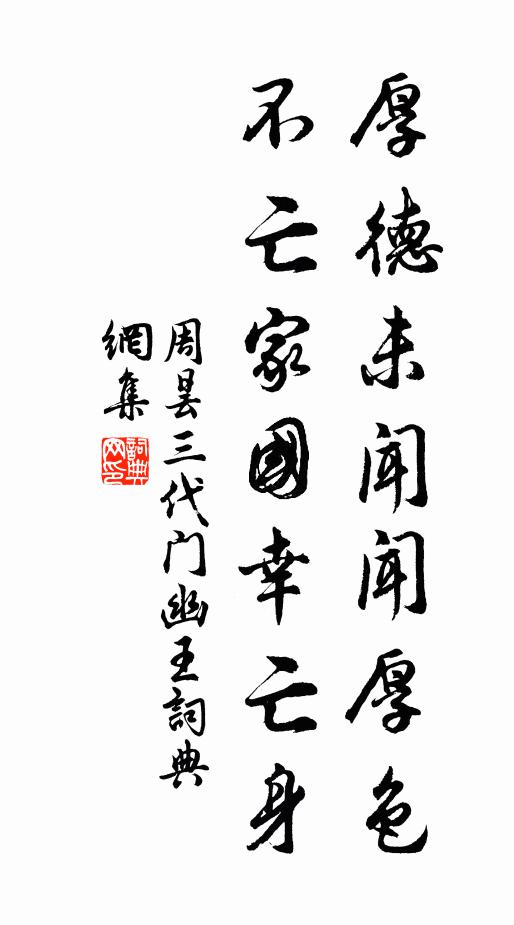 厚德未闻闻厚色
不亡家國幸亡身
周昙三代门幽王詞典
網集
詞典網印